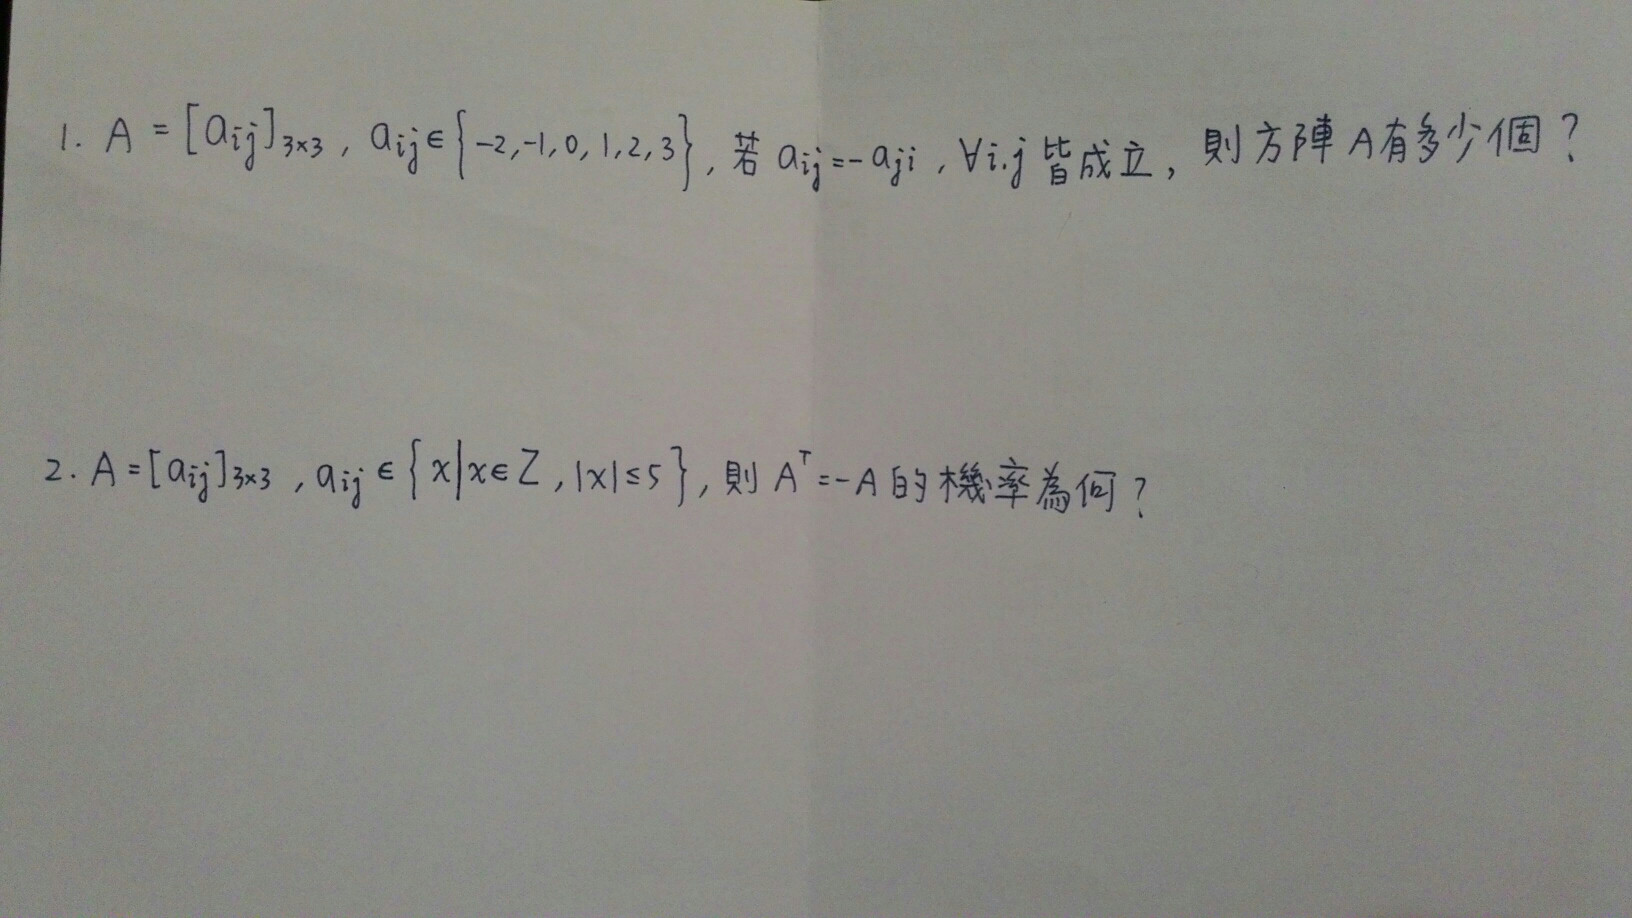 1. A = [aij]3×3 , aij ∈ {-2,-1,0,1,2,3}, 若 aij = -aji , ∀i.j 皆成立, 則方陣 A有多少個?
2. A = [aij]3×3 , aij ∈ {x|x∈Z , |x|≤5}, 則 A^T = -A 的機率為何?